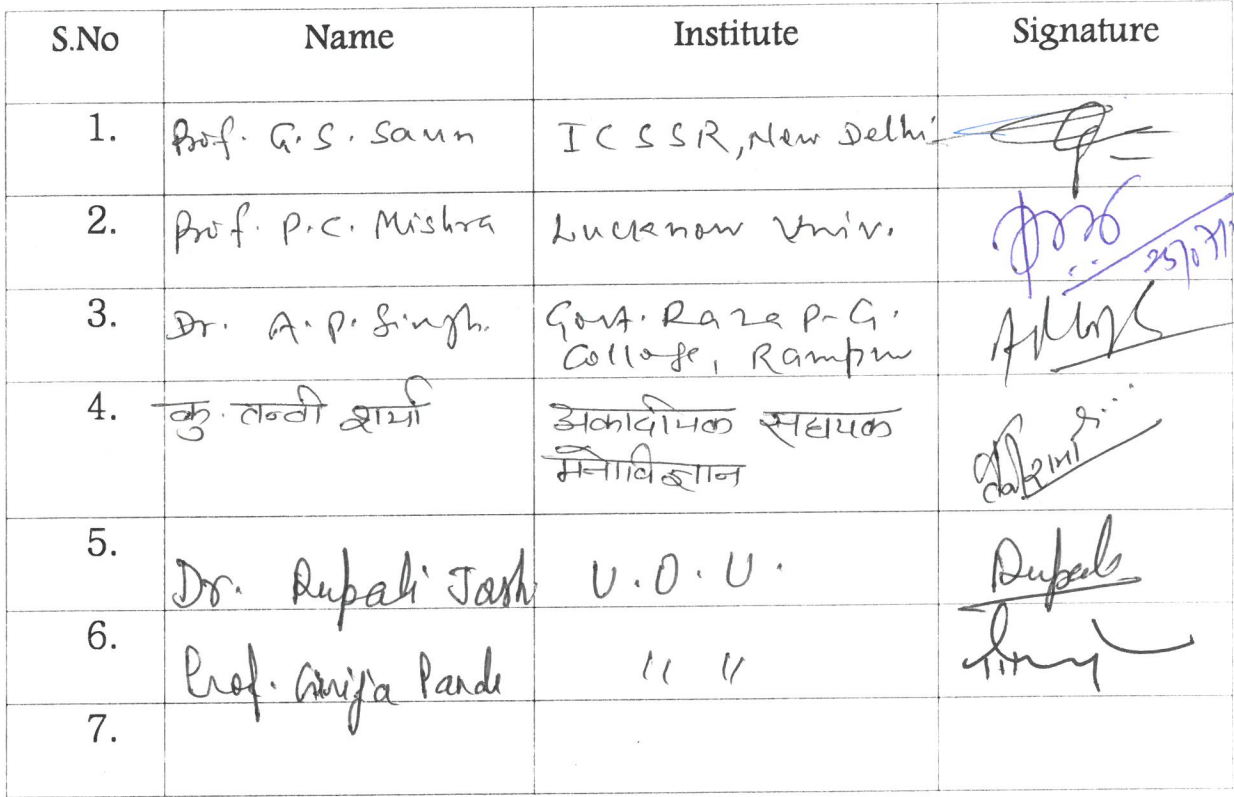 S.No Name Institute Signature
1. Prof. G.S. Saun ICSSR, New Delhi
2. Prof. P.C. Mishra Lucknow Univ.
25/07/
3. Dr. A.P. Singh. Govt. Raza P.G.
College, Rampur
4. कु. तन्वी शर्मा अकादमिक सहायक
मनोविज्ञान
5. Dr. Rupali Joshi U.O.U. Rupali
6. Prof. Girija Pande " "
7.